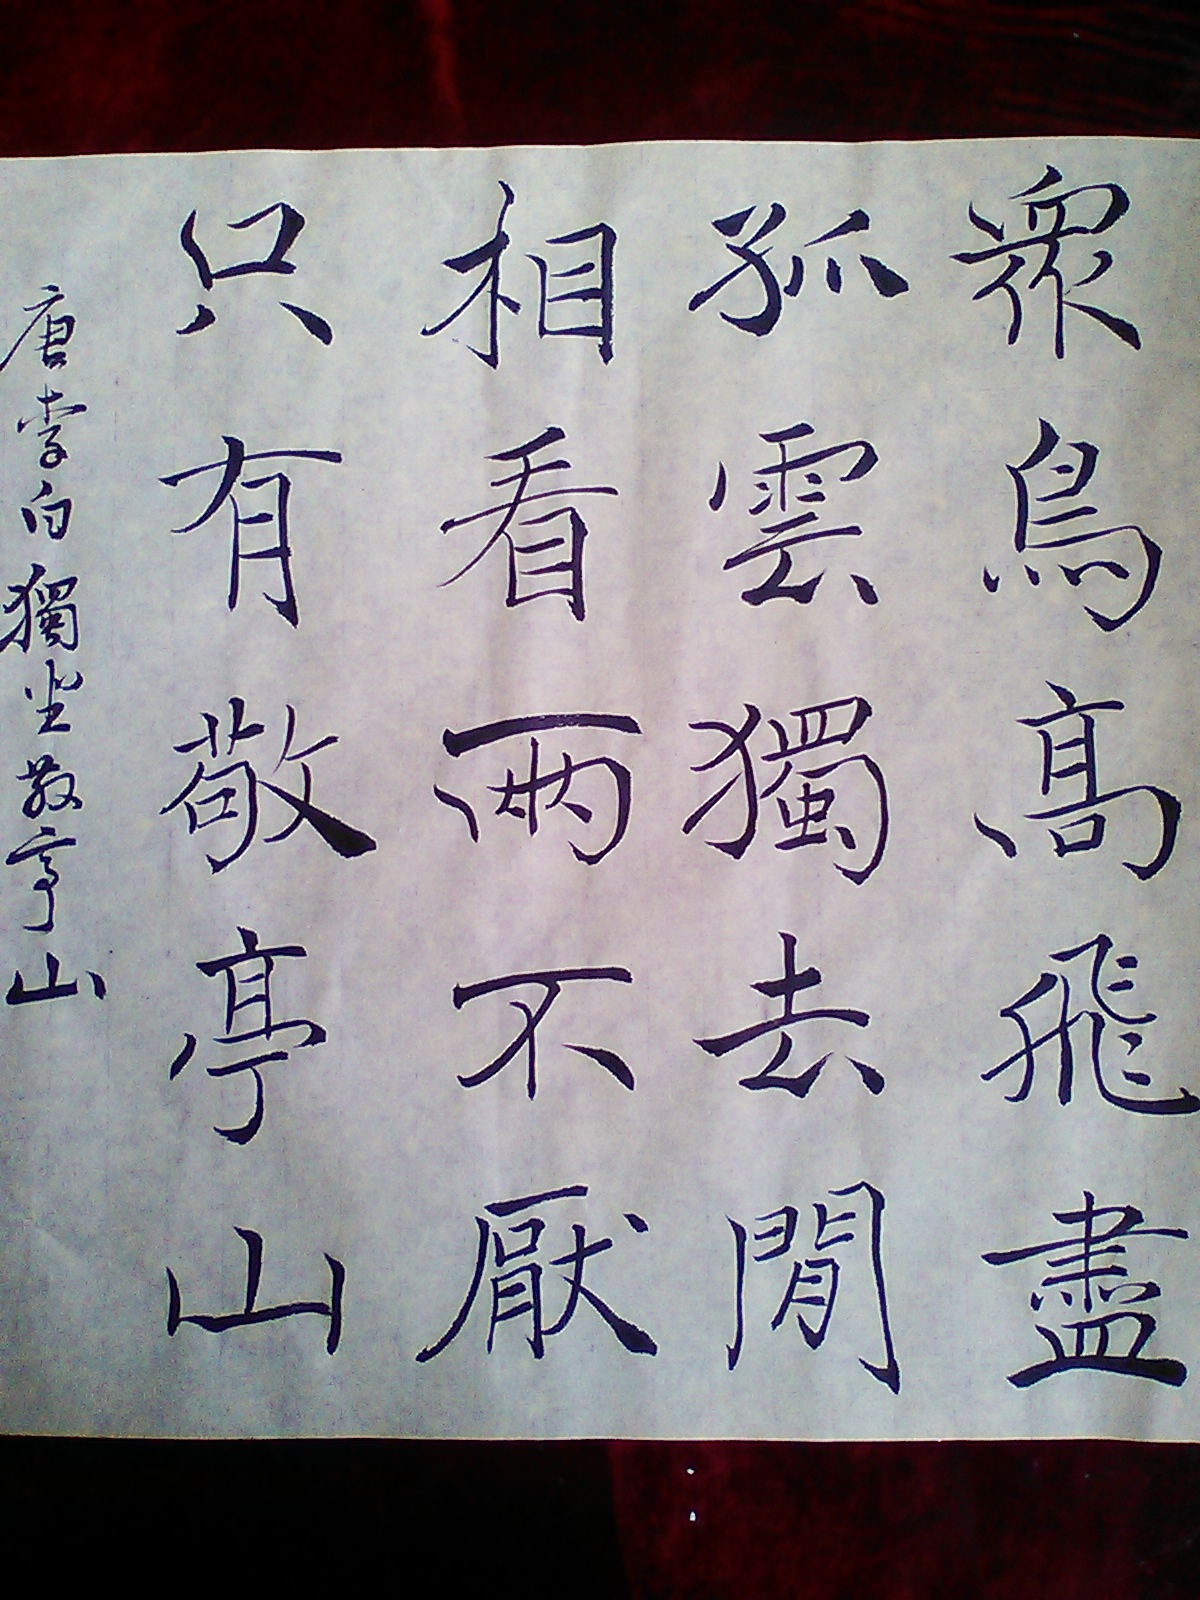 眾鳥高飛盡
孤雲獨去閒
相看兩不厭
只有敬亭山
唐李白獨坐敬亭山